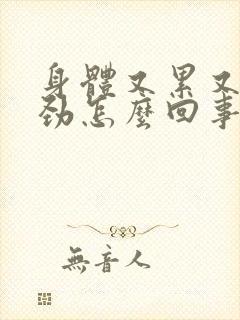 身體又累又
勁怎麼回事
無音人